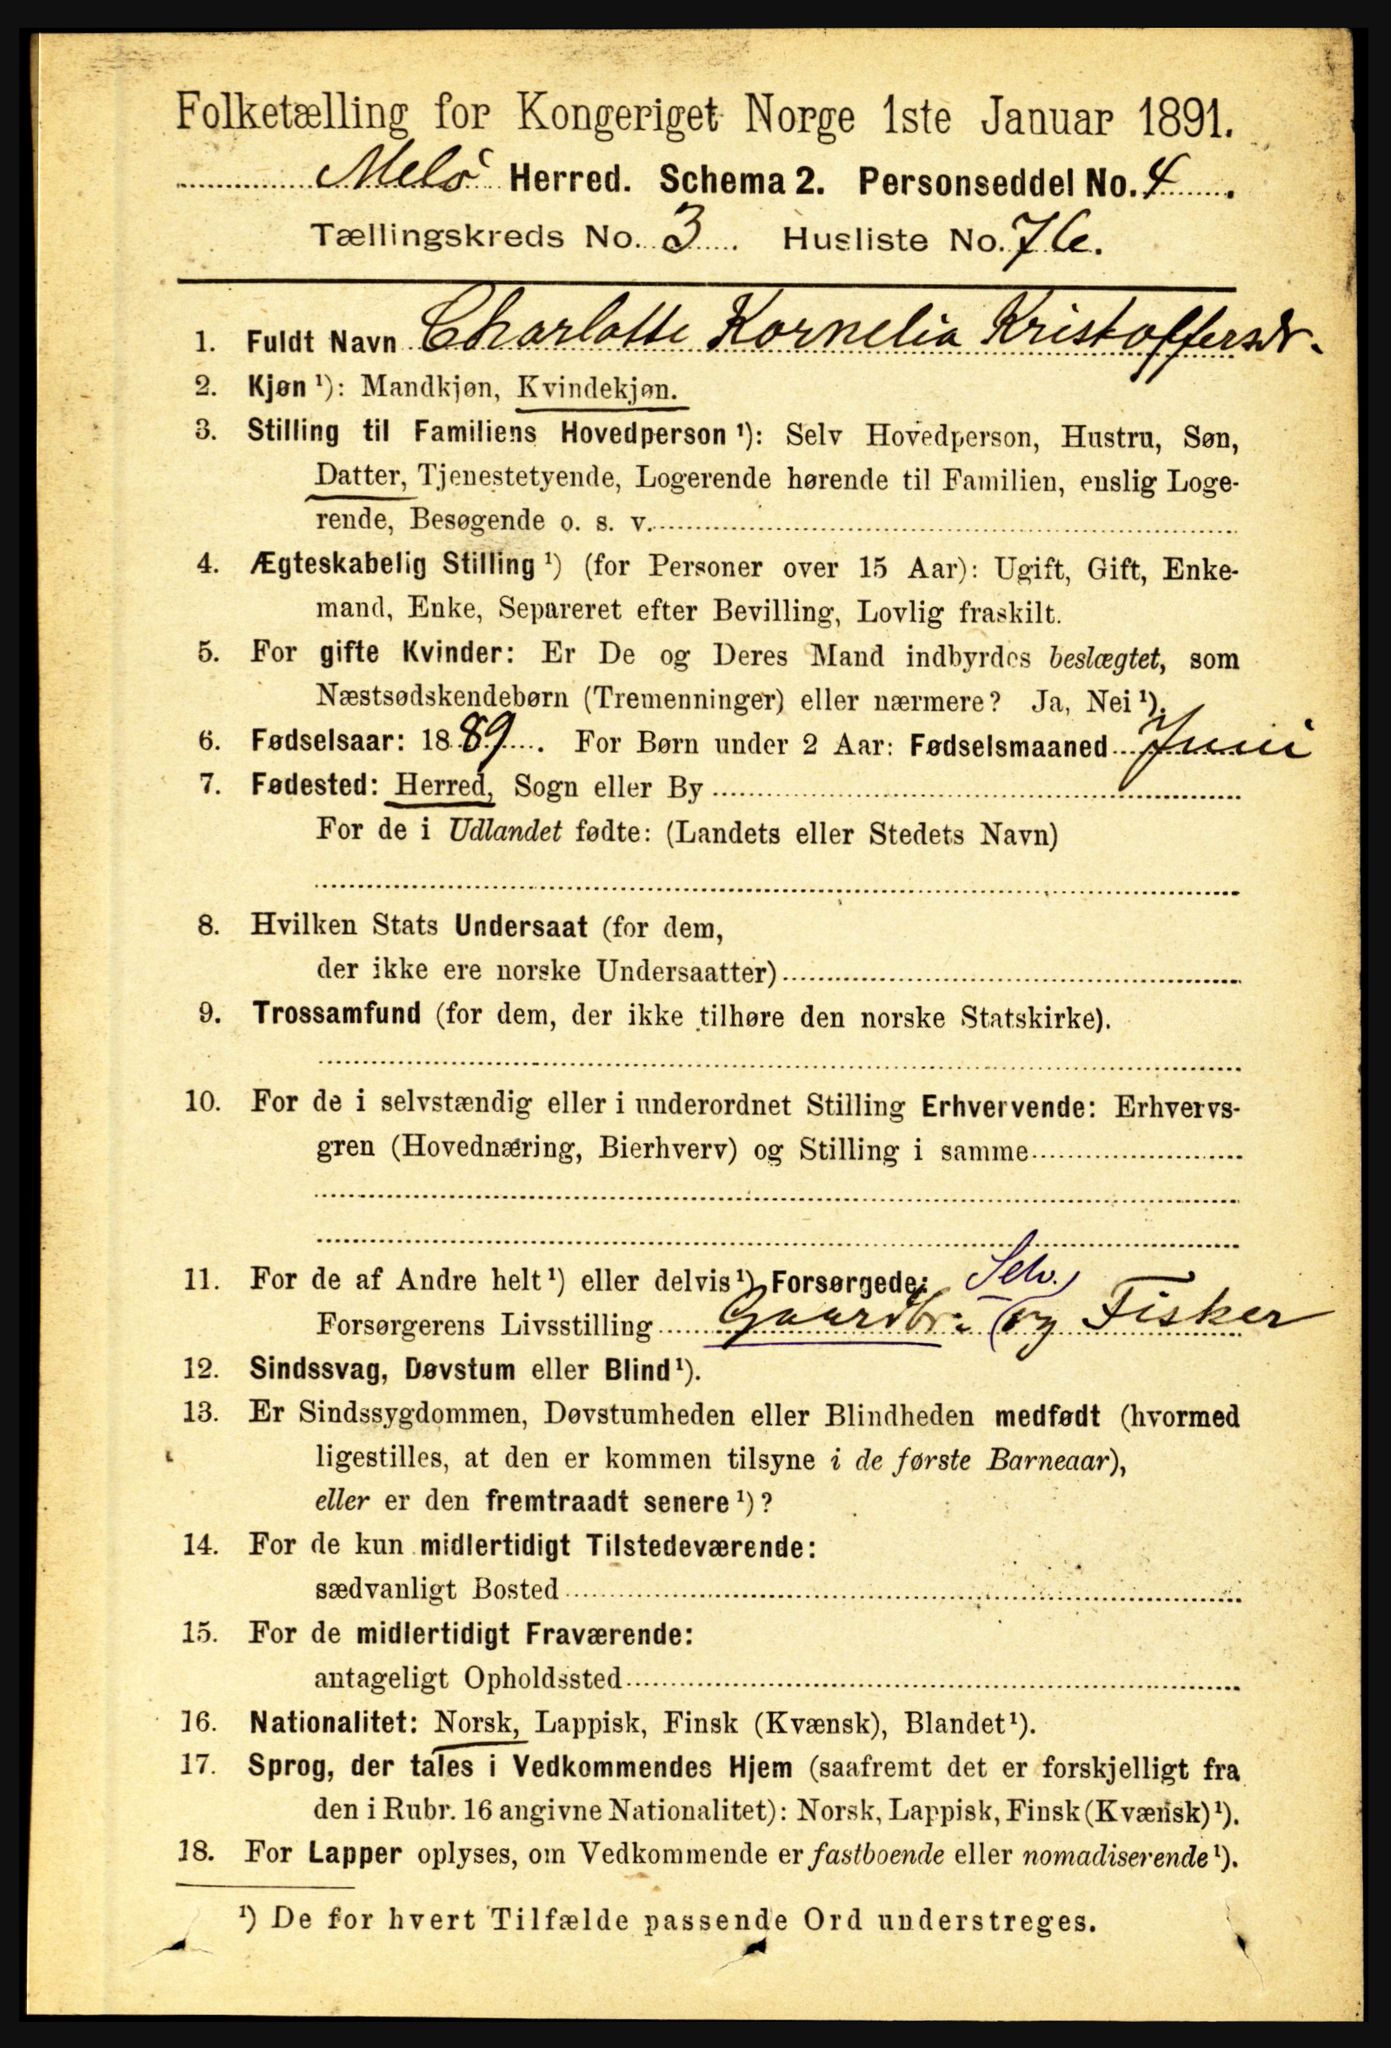 Folketælling for Kongeriget Norge 1ste Januar 1891.
Melö Herred. Schema 2. Personseddel No. 4.
Tællingskreds No. 3. Husliste No. 76.
1. Fuldt Navn Charlotte Kornelia Kristoffersdr.
2. Kjøn ¹): Mandkjøn, Kvindekjøn.
3. Stilling til Familiens Hovedperson ¹): Selv Hovedperson, Hustru, Søn,
Datter, Tjenestetyende, Logerende hørende til Familien, enslig Loge-
rende, Besøgende o. s. v.
4. Ægteskabelig Stilling ¹) (for Personer over 15 Aar): Ugift, Gift, Enke-
mand, Enke, Separeret efter Bevilling, Lovlig fraskilt.
5. For gifte Kvinder: Er De og Deres Mand indbyrdes beslægtet, som
Næstsødskendebørn (Tremenninger) eller nærmere? Ja, Nei ¹).
6. Fødselsaar: 1889. For Børn under 2 Aar: Fødselsmaaned Juni
7. Fødested: Herred, Sogn eller By
For de i Udlandet fødte: (Landets eller Stedets Navn)
8. Hvilken Stats Undersaat (for dem,
der ikke ere norske Undersaatter)
9. Trossamfund (for dem, der ikke tilhøre den norske Statskirke).
10. For de i selvstændig eller i underordnet Stilling Erhvervende: Erhvervs-
gren (Hovednæring, Bierhverv) og Stilling i samme
11. For de af Andre helt ¹) eller delvis ¹) Forsørgede: Selv.
Forsørgerens Livsstilling Gaardbr: og Fisker
12. Sindssvag, Døvstum eller Blind ¹).
13. Er Sindssygdommen, Døvstumheden eller Blindheden medfødt (hvormed
ligestilles, at den er kommen tilsyne i de første Barneaar),
eller er den fremtraadt senere ¹)?
14. For de kun midlertidigt Tilstedeværende:
sædvanligt Bosted
15. For de midlertidigt Fraværende:
antageligt Opholdssted
16. Nationalitet: Norsk, Lappisk, Finsk (Kvænsk), Blandet ¹).
17. Sprog, der tales i Vedkommendes Hjem (saafremt det er forskjelligt fra
den i Rubr. 16 angivne Nationalitet): Norsk, Lappisk, Finsk (Kvænsk) ¹).
18. For Lapper oplyses, om Vedkommende er fastboende eller nomadiserende ¹).
¹) De for hvert Tilfælde passende Ord understreges.